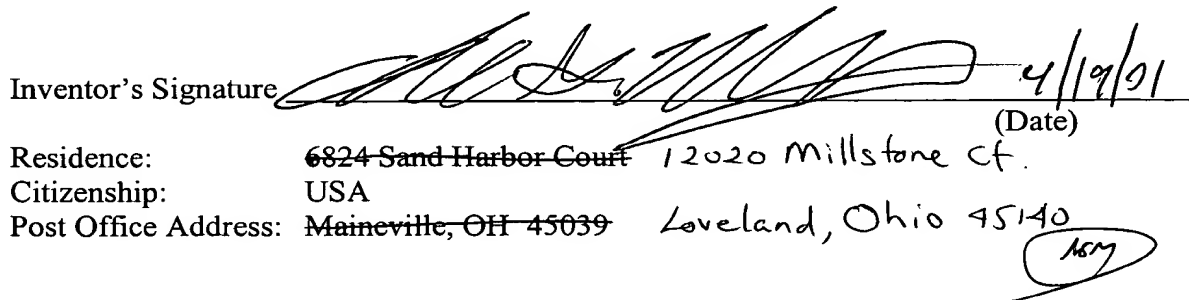 Inventor's Signature 4/19/01
(Date)
Residence: 6824 Sand Harbor Court 12020 Millstone Ct.
Citizenship: USA
Post Office Address: Maineville, OH 45039 Loveland, Ohio 45140